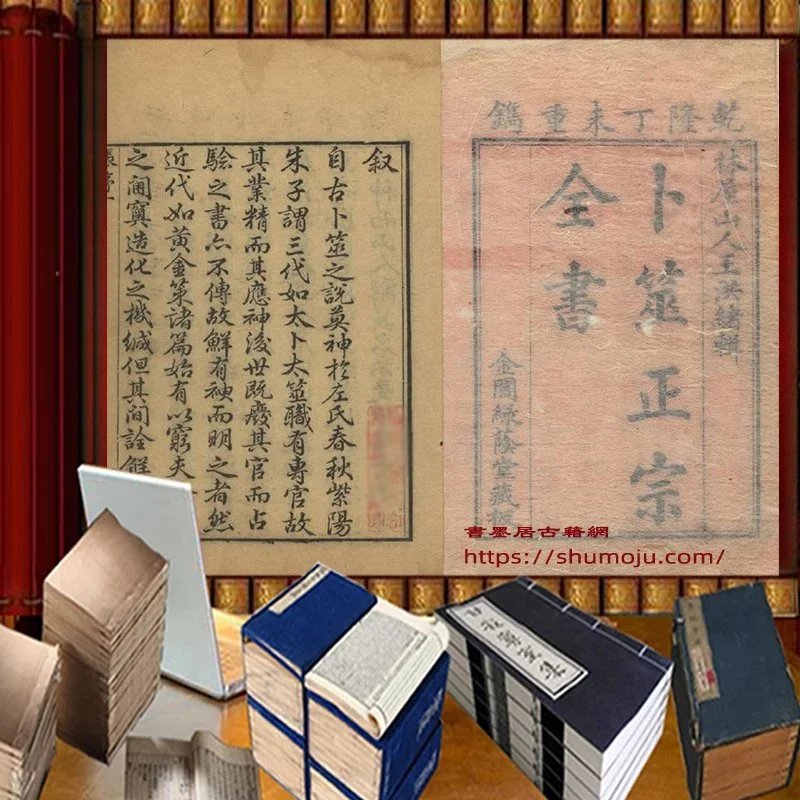 乾隆丁未重鐫
林屋山人王洪緒輯
卜筮正宗
全書
金閶綠蔭堂藏板
叙
自古卜筮之説莫神扵左氏春秋紫陽
朱子謂三代如太卜太筮職有專官故
其業精而其應神後世既廢其官而占
驗之書亦不傳故鮮有神而明之者然
近代如黄金策諸篇始有以窮夫
之閫寞造化之機緘但其间詮解
書墨居古籍網
https://shumoju.com/